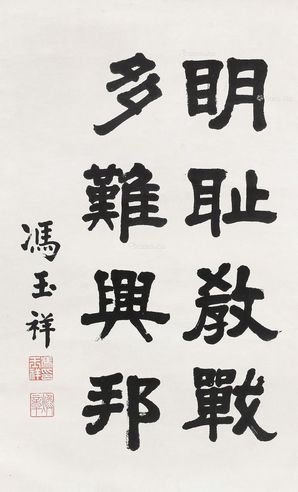 明恥教戰
多難興邦
馮玉祥